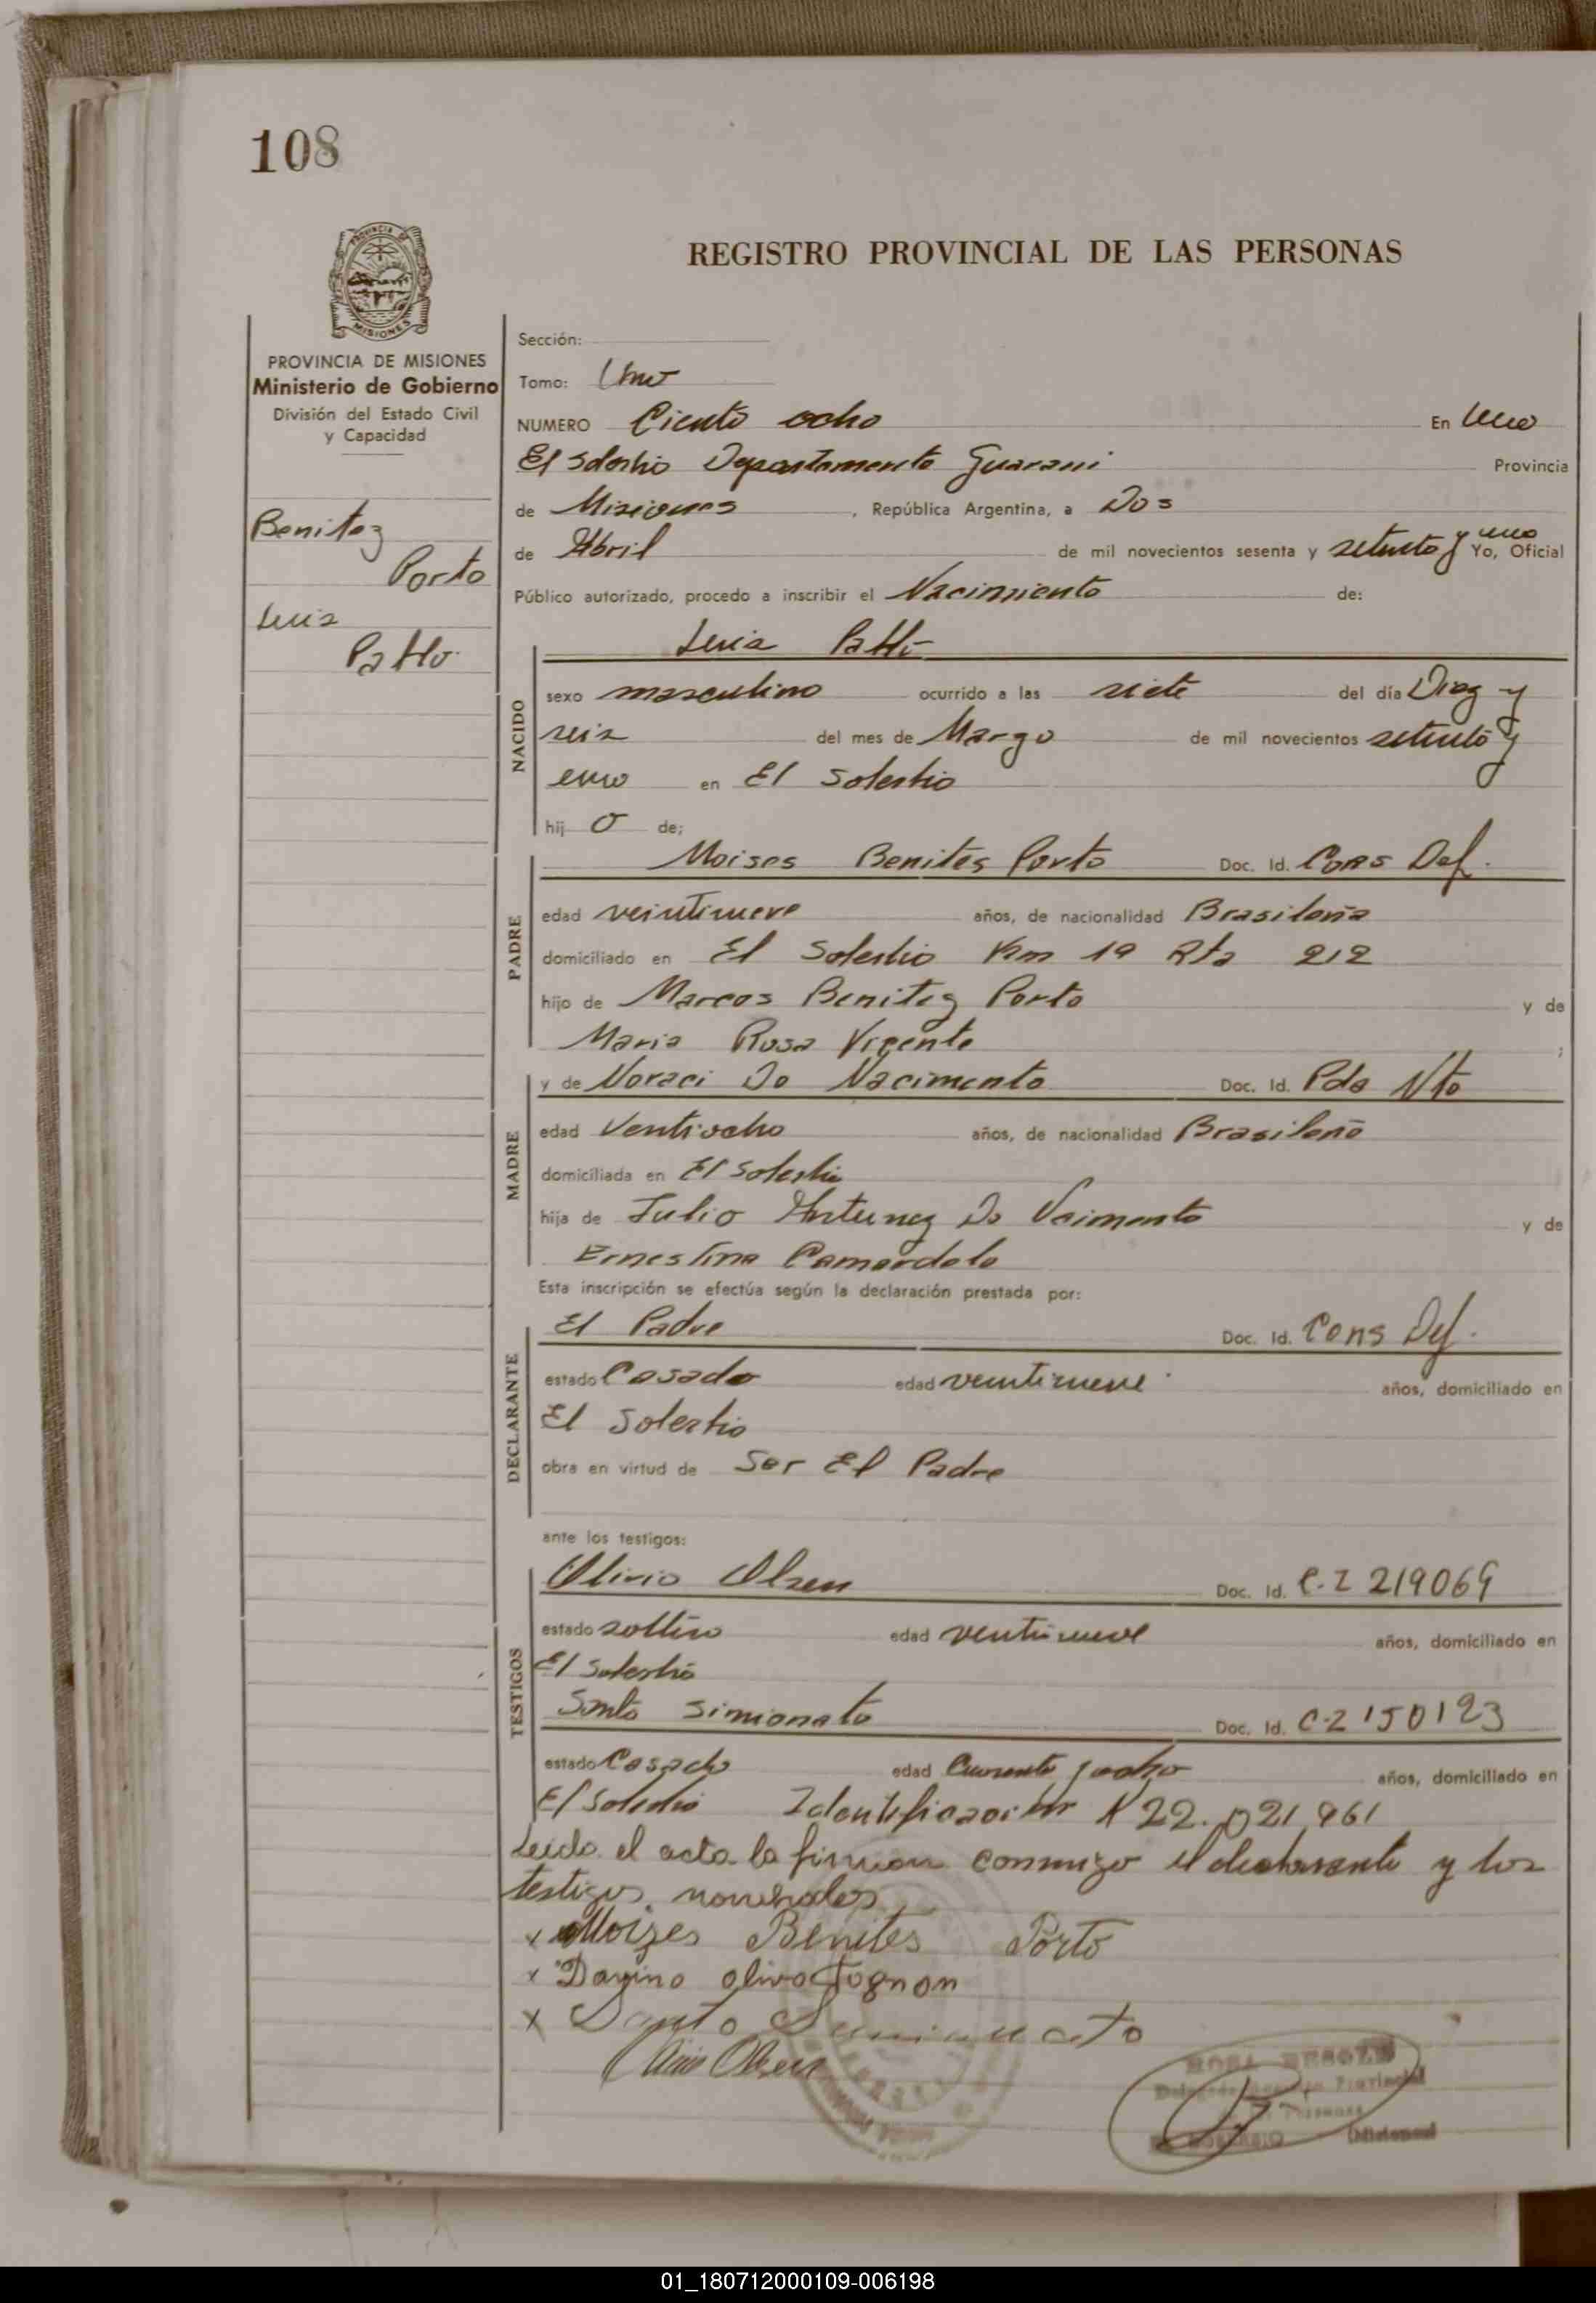 108
REGISTRO PROVINCIAL DE LAS PERSONAS
MISIONES
PROVINCIA DE MISIONES
Ministerio de Gobierno
División del Estado Civil
y Capacidad
Benitez
Porto
Luis
Pablo
Sección:
Tomo: Uno
NUMERO Ciento ocho En Uno
El Soberbio Departamento Guarani Provincia
de Misiones , República Argentina, a Dos
de Abril de mil novecientos sesenta y setenta y uno Yo, Oficial
Público autorizado, procedo a inscribir el Nacimiento de:
Luis Pablo
NACIDO
sexo masculino ocurrido a las siete del día Diez y
seis del mes de Marzo de mil novecientos setenta y
uno en El Soberbio
hij o de;
PADRE
Moises Benites Porto Doc. Id. Cons Def.
edad veintinueve años, de nacionalidad Brasileña
domiciliado en El Soberbio Km 19 Rta 212
hijo de Marcos Benitez Porto y de
Maria Rosa Vicente ;
MADRE
y de Noraci Do Nacimento Doc. Id. Pda Nto
edad Ventiocho años, de nacionalidad Brasileño
domiciliada en El Soberbio
hija de Julio Antunez Do Nacimento y de
Ernestina Camardelo
Esta inscripción se efectúa según la declaración prestada por:
DECLARANTE
El Padre Doc. Id. Cons Def.
estado Casado edad veintinueve años, domiciliado en
El Soberbio
obra en virtud de Ser El Padre
ante los testigos:
TESTIGOS
Olivio Olsen Doc. Id. C.I 219069
estado soltero edad ventinueve años, domiciliado en
El Soberbio
Santo Simionato Doc. Id. C.I 150123
estado Casado edad Cuarenta y ocho años, domiciliado en
El Soberbio Identificacion N 22.021.961
Leida el acta la firman conmigo el declarante y los
testigos nombrados
x Moizes Benites Porto
x Davino olivo Tognon
x Santo Simionato
Olivio Olsen
ROSA
Provincial
Personas
Misiones
01_180712000109-006198